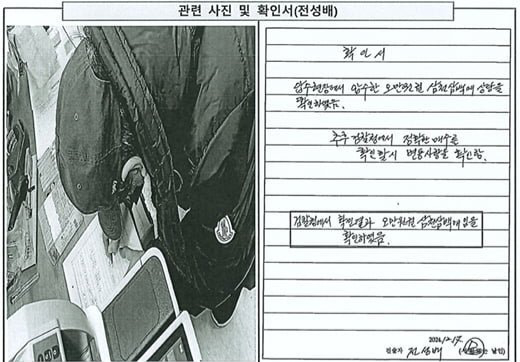 관련 사진 및 확인서(전성배)
확 인 서
압수현장에서 압수한 오만원권 삼천삼백매 상당을
확인하였음.
추후 검찰청에서 정확한 매수를
확인할시 변동사항을 확인함.
검찰청에서 확인결과 오만원권 삼천삼백매 임을
확인하였음.
2024. 12. 17.
진술자 전성배 (서명 또는 날인)